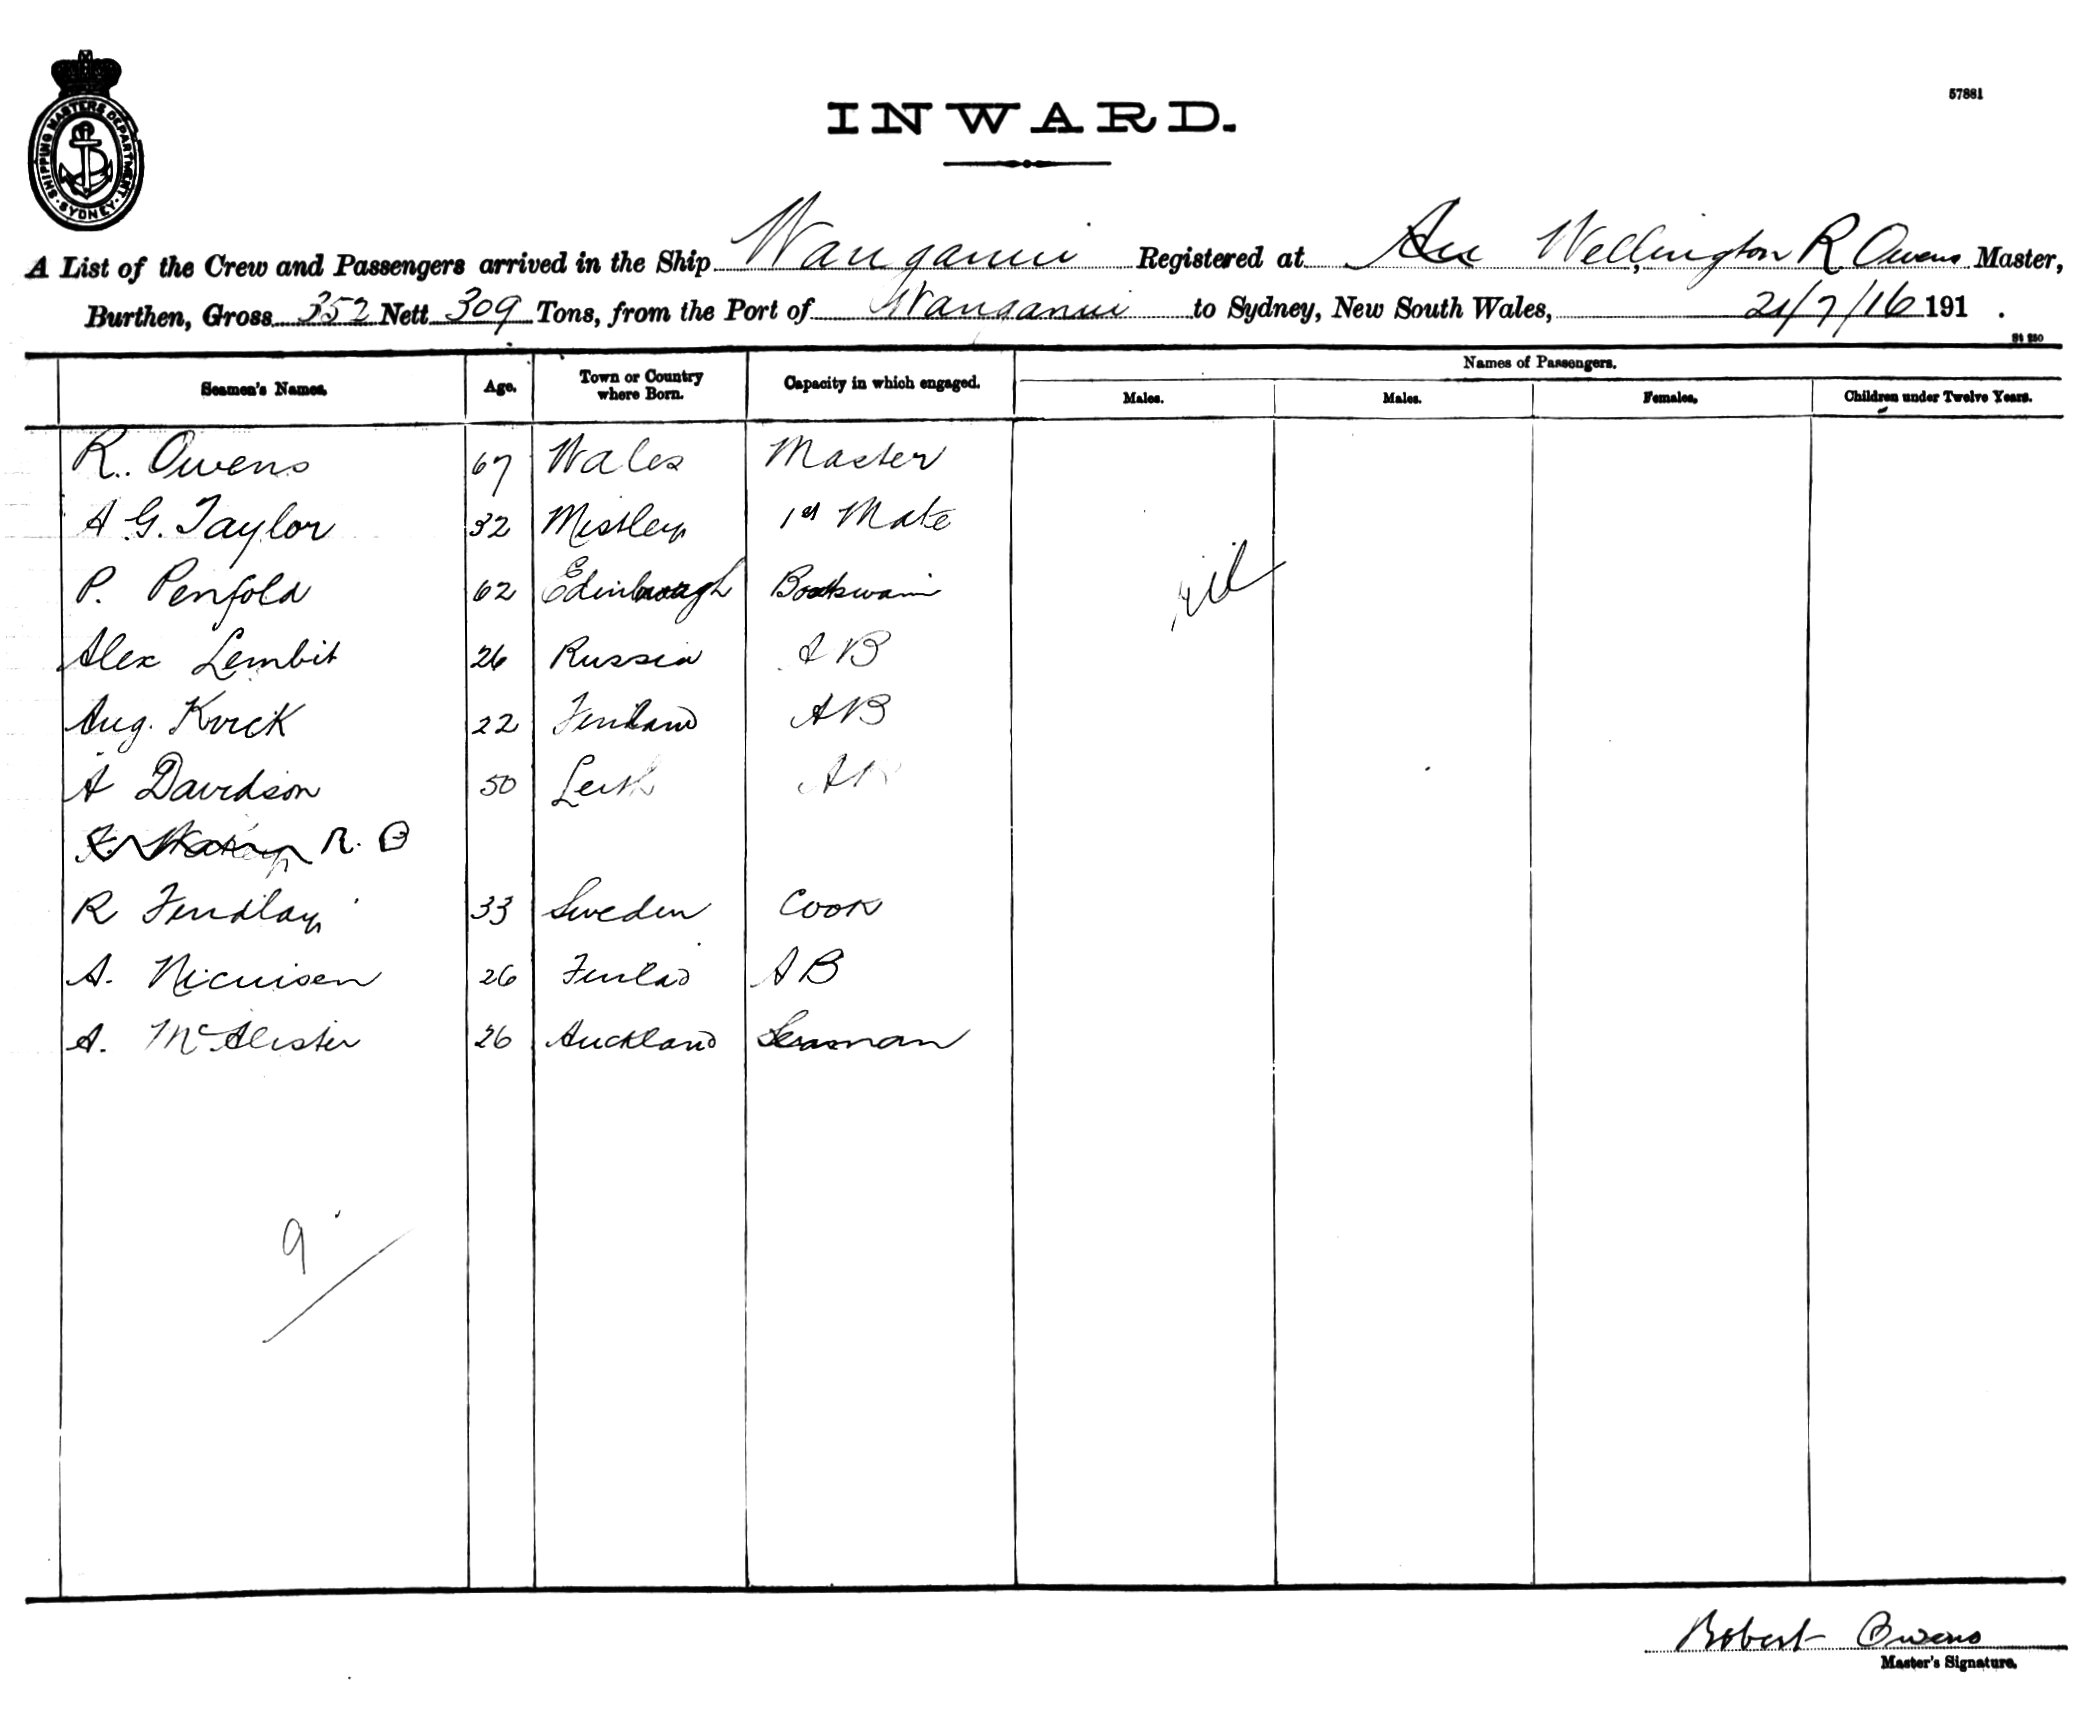 SHIPPING MASTERS DEPARTMENT
SYDNEY
57881
INWARD.
A List of the Crew and Passengers arrived in the Ship Wanganui Registered at Wellington R. Owens Master,
Burthen, Gross 352 Nett 309 Tons, from the Port of Wanganui to Sydney, New South Wales, 21/7/16 191 .
Names of Passengers.
Seamen's Names. Age. Town or Country where Born. Capacity in which engaged. Males. Males. Females. Children under Twelve Years.
R. Owens 67 Wales Master
A. G. Taylor 32 Mistley 1st Mate
P. Penfold 62 Edinburgh Boatswain nil
Alex Lembit 26 Russia AB
Aug. Kvick 22 Finland AB
A Davidson 50 Leith AB
R. O
R Findlay 33 Sweden Cook
A. 26 Finlad AB
A. McAlister 26 Auckland Seaman
9
Robert Owens
Master's Signature.